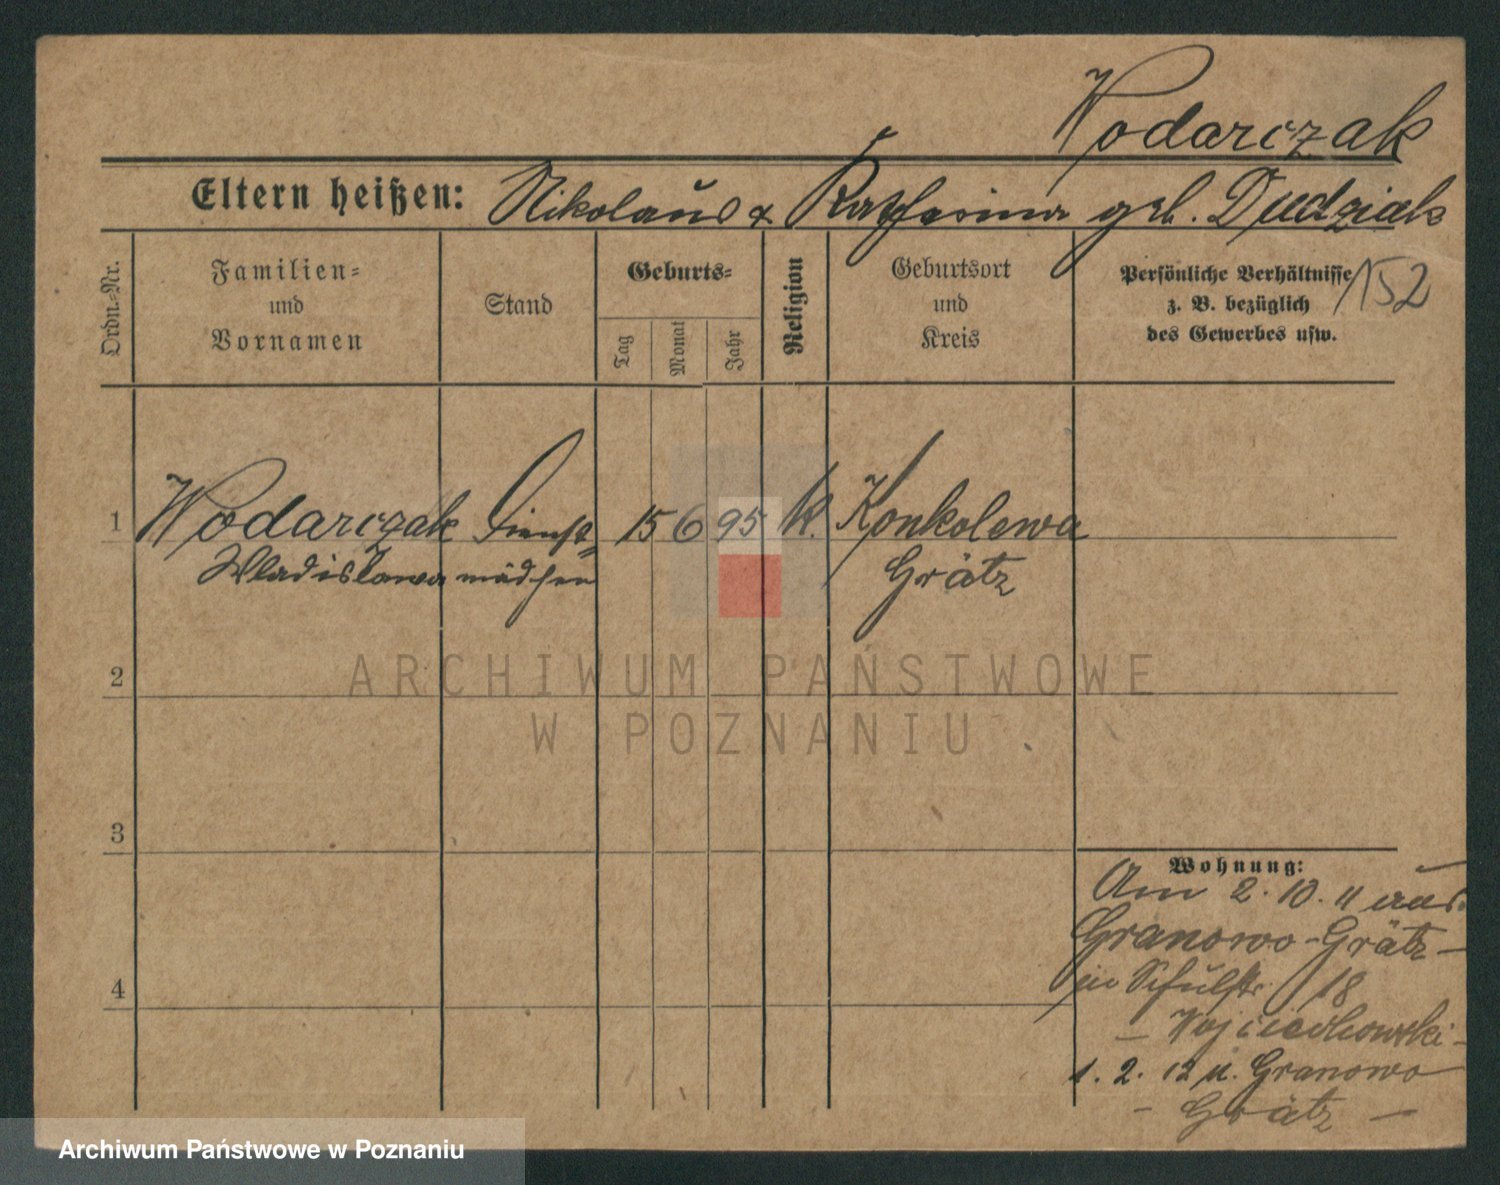 Wodarczak
Eltern heißen: Nikolaus & Katharina geb. Dudziak
Ordn.-Nr.
Familien-
und
Vornamen
Stand
Geburts-
Tag
Monat
Jahr
Religion
Geburtsort
und
Kreis
Persönliche Verhältnisse
z. B. bezüglich
des Gewerbes usw.
152
1 Wodarczak Dienst- 15 6 95 k. Konkolewa
Wladislawa mädchen Grätz
ARCHIWUM PAŃSTWOWE
W POZNANIU
2
3
4
Wohnung:
Am 2.10.11 aus
Granowo-Grätz-
in Schulstr. 18
- Wojciechowski -
1.2.12 n. Granowo
- Grätz -
Archiwum Państwowe w Poznaniu